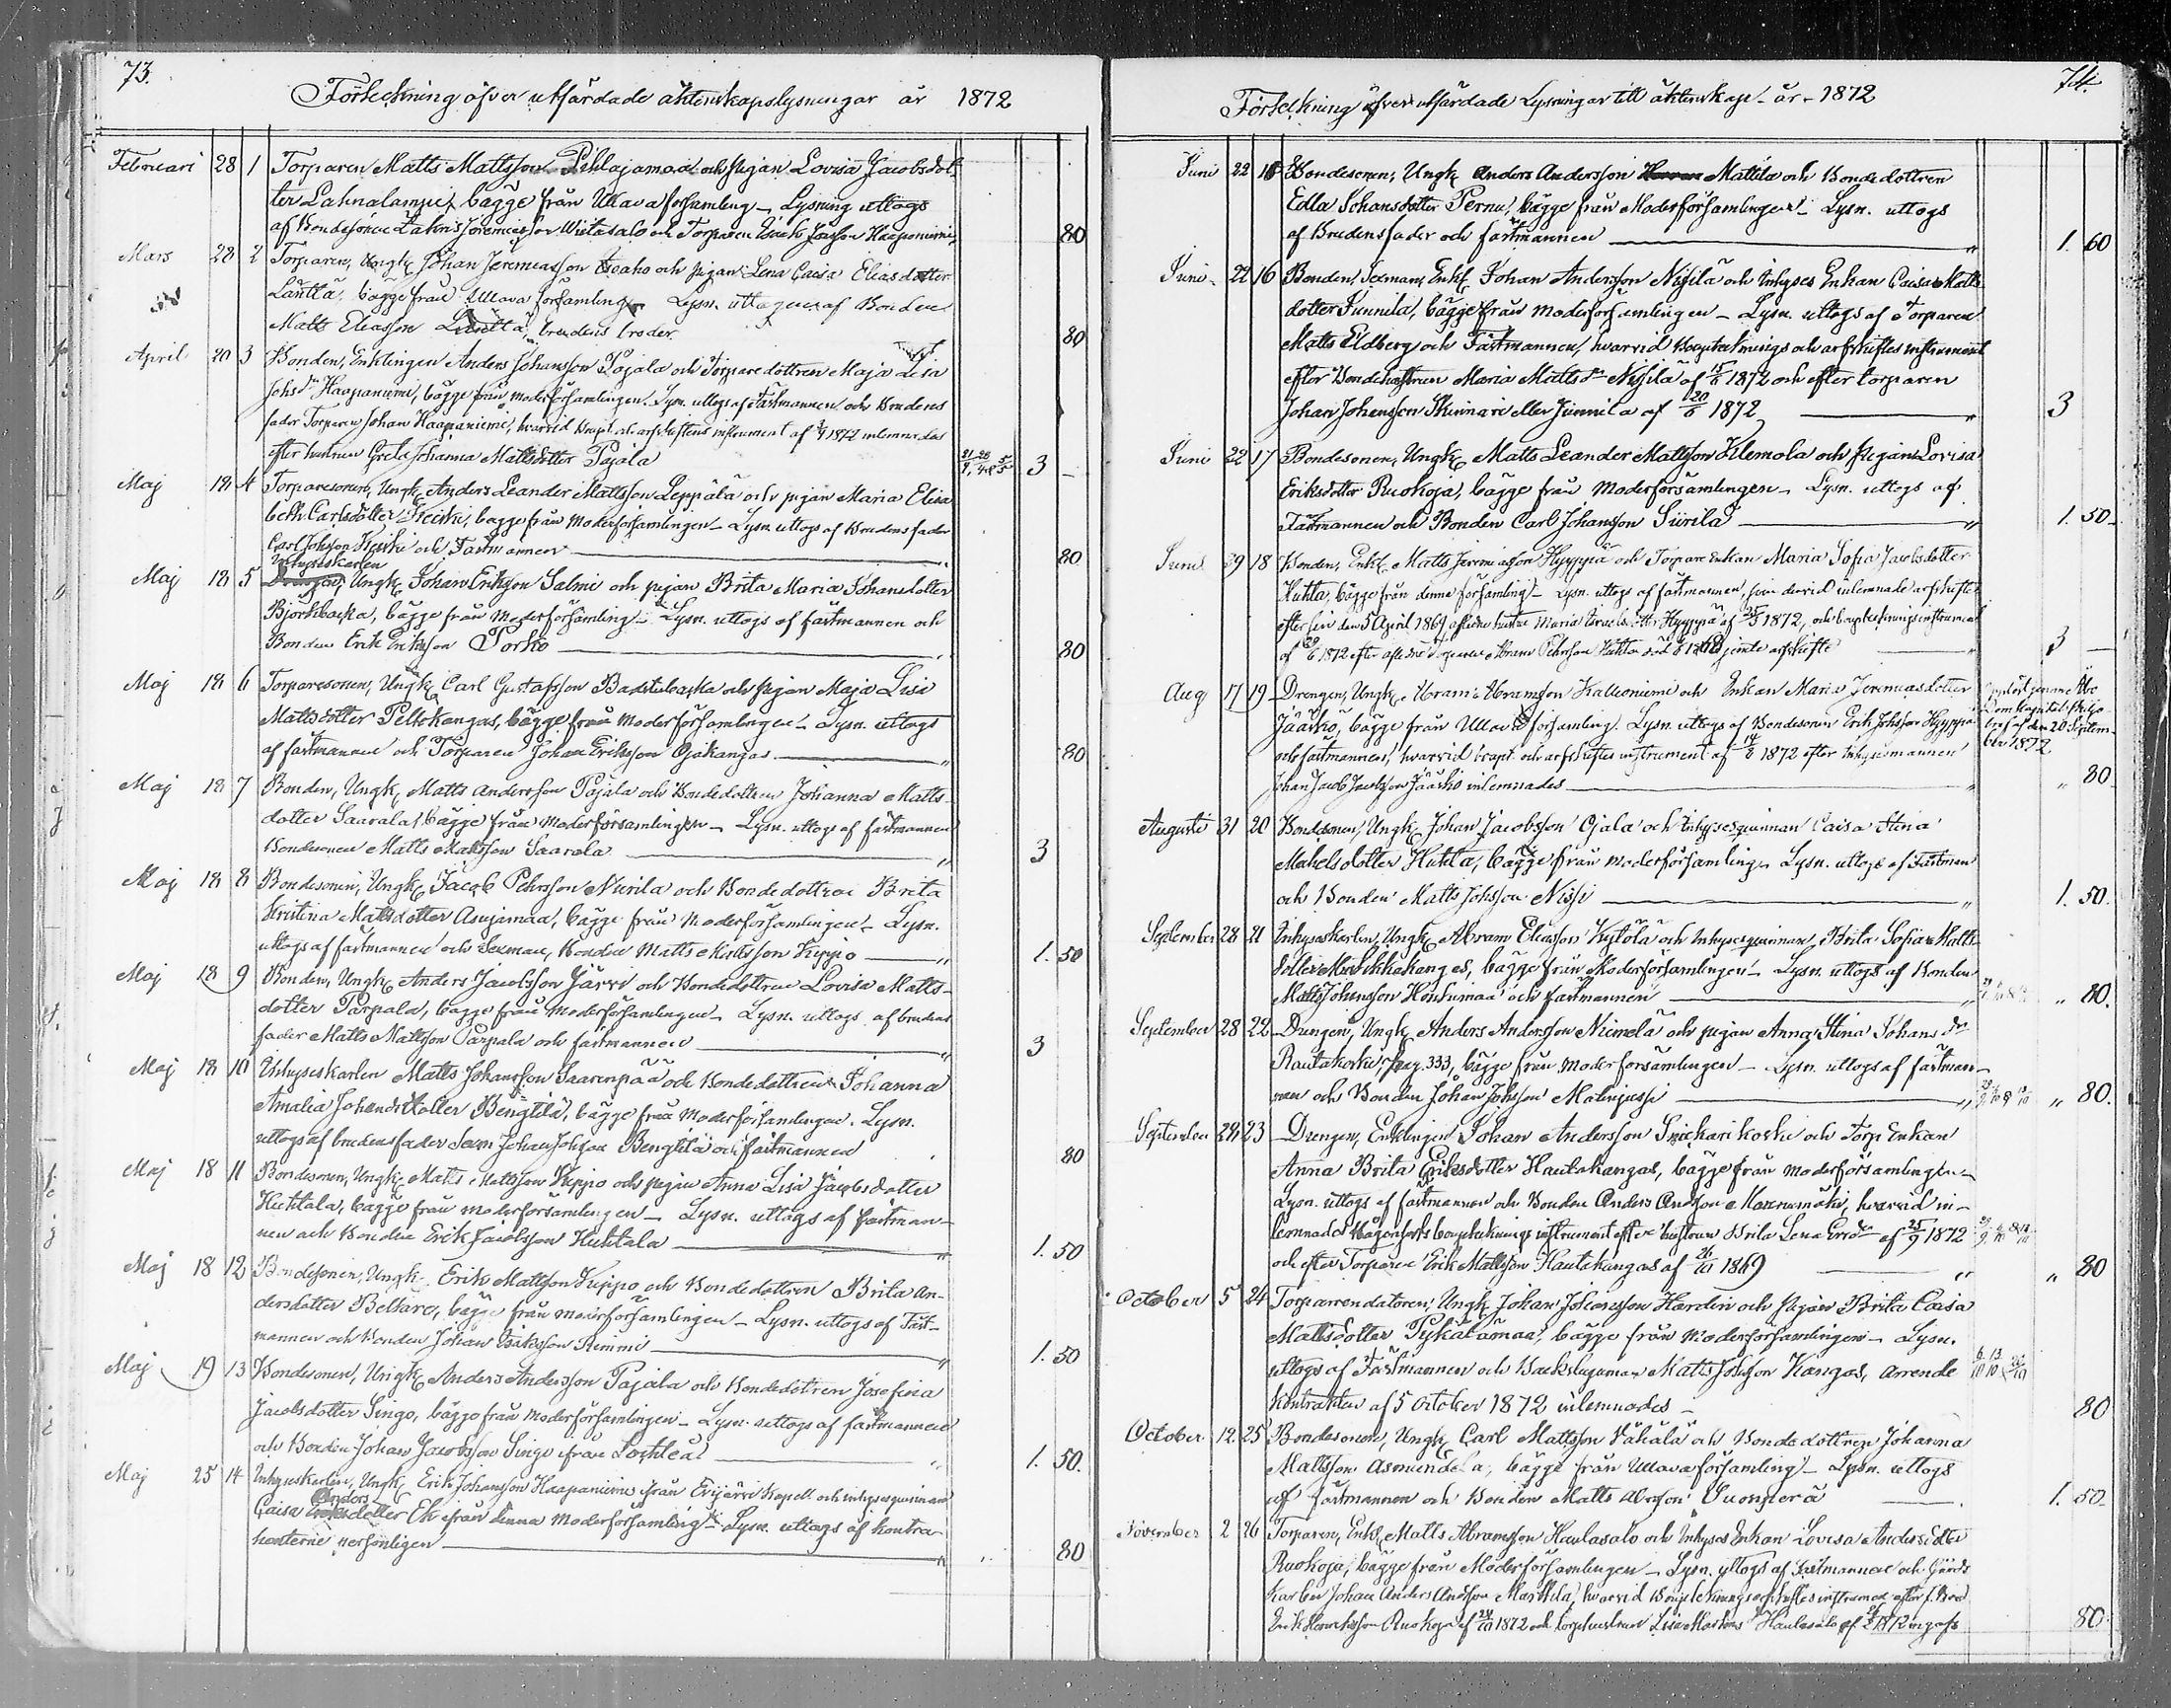 73.
Förteckning öfver utfärdade äktenskapslysningar år 1872
Februari 28 1 Torparen Matts Mattsson Pihlajamaa och pigan Lovisa Jacobsdot
ter Lahnalampi, bägge från Ullava församling - Lysning uttogs
af Bondesonen Zakris Jeremiasson Wiitasalo och Torparen Erick Jonsson Haapaniemi, 80
Mars 28 2 Torparen, Ungk. Johan Jeremiasson och pigan Lena Caisa Eliasdotter
Läntta, bägge från Ullava församling. Lysn. uttogs af Bonden
Matts Eliasson Läntta, brudens broder. 80
April 20 3 Bonden, Enklingen Anders Johansson Pajala och Torparedottren Maja Lisa
Johsdr Haapaniemi, bägge från moderförsamlingen. Lysn. uttogs af Fästmannen och Brudens
fader Torparen Johan Haapaniemi, hvarvid Boupt. och arfskiftens instrument af 1872 inlemnades
efter hustrun Greta Johanna Mattsdotter Pajala 3 -
Maj 18 4 Torparesonen, Ungk. Anders Leander Mattsson Leppälä och pigan Maria Elisa
beth Carlsdotter Heiki, bägge från moderförsamlingen - Lysn. uttogs af Brudens fader
Carl Johsson Heiki och Fästmannen 80
Inhyseskarlen
Maj 18 5 Drengen, Ungk. Johan Eriksson Salmi och pigan Brita Maria Johansdotter
Björkbacka, bägge från moderförsaml. - Lysn. uttogs af fästmannen och
Bonden Erik Eriksson Torko 80
Maj 18 6 Torparesonen, Ungk. Carl Gustafsson Badstubacka och pigan Maja Lisa
Mattsdotter Peltokangas, bägge från moderförsamlingen - Lysn. uttogs
af fästmannen och Torparen Johan Eriksson Ojakangas 80
Maj 18 7 Bonden, Ungk. Matts Andersson Pajala och Bondedottren Johanna Matts-
dotter Saarala, bägge från moderförsamlingen - Lysn. uttogs af fästmannen
Bondesonen Matts Mattsson Saarala 3
Maj 18 8 Bondesonen, Ungk. Jacob Pehrsson Niirila och Bondedottren Brita
Kristina Mattsdotter Asujamaa, bägge från moderförsamlingen - Lysn.
uttogs af fästmannen och Sexman, Bonden Matts Mattsson Kippo 1. 50
Maj 18 9 Bonden, Ungk. Anders Jacobsson Järvi och Bondedottren Lovisa Matts-
dotter Parpala, bägge från moderförsamlingen - Lysn. uttogs af brudens
fader Matts Mattsson Parpala och fästmannen 3
Maj 18 10 Inhyseskarlen Matts Johansson Saarenpää och Bondedottren Johanna
Amalia Johansdotter Bengtilä, bägge från moderförsamlingen. Lysn.
uttogs af brudens fader Sexm. Johan Johsson Bengtilä och fästmannen 80
Maj 18 11 Bondesonen, Ungk. Matts Mattsson Kippo och pigan Anna Lisa Jacobsdotter
Huhtala, bägge från moderförsamlingen - Lysn. uttogs af fästman-
nen och Bonden Erik Jacobsson Huhtala 1. 50
Maj 18 12 Bondesonen, Ungk. Erik Mattsson Kippo och Bondedottren Brita An-
dersdotter Beltare, bägge från moderförsamlingen - Lysn. uttogs af Fäst-
mannen och Bonden Johan Isaksson Rimmi 1. 50
Maj 19 13 Bondesonen, Ungk. Anders Andersson Pajala och Bondedottren Josefina
Jacobsdotter Singo, bägge från moderförsamlingen - Lysn. uttogs af fästmannen
och Bonden Johan Jacobsson Singo från Lochteå 1. 50.
Maj 25 14 Inhyseskarlen, Ungk. Erik Johansson Haapaniemi från Evijärvi Kapell och inhysesqvinnan
Anders
Caisa dotter Ek från denna Moderförsamling - Lysn. uttogs af kontra-
henterne personligen 80
74.
Förteckning öfver utfärdade Lysningar till äktenskap - år - 1872
Juni 22 15 Bondesonen, Ungk. Anders Andersson Mattila och Bondedottren
Edla Johansdotter Pernu, bägge från Moderförsamlingen - Lysn. uttogs
af Brudens fader och fästmannen 1. 60
Juni 22 16 Bonden, Sexman, Enkl. Johan Andersson Nissilä och Inhyses Enkan Caisa Matts-
dotter Junnila, bägge från moderförsamlingen - Lysn. uttogs af Torparen
Matts Eldberg och Fästmannen, hvarvid Boupteknings och arfskiftes instrument
efter Bondehustrun Maria Mattsdr Nissilä af 1872 och efter torparen
Johan Johansson Skinnari eller Junnila af 20/6 1872 3
Juni 22 17 Bondesonen, Ungk. Matts Leander Mattsson Klemola och pigan Lovisa
Eriksdotter Ruokoja, bägge från moderförsamlingen - Lysn. uttogs af
Fästmannen och Bonden Carl Johansson Siirilä 1. 50
Juni 29 18 Bonden, Enkl. Matts Jeremiasson Hyyppä och Torpare Enkan Maria Sofia Jacobsdotter
Huhta, bägge från denna församling - Lysn. uttogs af fästmannen, som dervid inlemnade arfskifte
efter sin den 5 April 1869 aflidne hustru Maria Hyyppä af 1872, och bouptekningsinstrument
af 1872 efter aflidne Torparen Abram Pehrsson Huhta jemte arfskifte 3 -
Aug 17 19 Drengen, Ungk. Abram Abramsson Kalliоniemi och Enkan Maria Jeremiasdotter
Jääskö, bägge från Ullava församling. Lysn. uttogs af Bondesonen Erik Johsson Hyyppä
och fästmannen, hvarvid boupt. och arfskiftes instrument af 14/8 1872 efter Inhysesmannen
Johan Jacob Jacobsson Jääskö inlemnades „ 80
Upplöst genom Åbo
Domkapitels skiljo
bref af den 20 Septem-
ber 1872
Augusti 31 20 Bondesonen, Ungk. Johan Jacobsson Ojala och Inhysesqvinnan Caisa Stina
Mickelsdotter Huhta, bägge från moderförsamling. Lysn. uttogs af Fästman
och Bonden Matts Johsson Nissi 1. 50.
September 28 21 Inhyseskarlen, Ungk. Abram Eliasson Kytölä och Inhysesqvinnan Brita Sofia Matts-
dotter Sikkakangas, bägge från Moderförsamlingen - Lysn. uttogs af Bonden
Matts Johansson Honkimaa och fästmannen „ 80.
September 28 22 Drengen, Ungk. Anders Andersson Niemelä och pigan Anna Stina Johansdr
Rautakoski, pag. 333, bägge från moderförsamlingen - Lysn. uttogs af fästman-
nen och Bonden Johan Johsson Malinjussi „ 80.
September 29 23 Drengen, Enklingen Johan Andersson och Torp. Enkan
Anna Brita Eriksdotter Hautakangas, bägge från moderförsamlingen
Lysn. uttogs af fästmannen och Bonden Anders Andsson, hvarvid in-
lemnades bouptekningsinstrument efter hustrun Brita Lena af 25/9 1872
och efter Torparen Erik Mattsson Hautakangas af 26/10 1869 „ 80
October 5 24 Torparrendatoren, Ungk. Johan Johansson Hardin och pigan Brita Caisa
Mattsdotter Pykälämaa, bägge från moderförsamlingen - Lysn.
uttogs af Fästmannen och Matts Johsson Kangas, Arrende
Kontrakten af 5 October 1872 inlemnades - 80
October 12. 25 Bondesonen, Ungk. Carl Mattsson Vähälä och Bondedottren Johanna
Mattsson, bägge från Ullava församling - Lysn. uttogs
af fästmannen och Bonden Matts Abrsson Vuonperä 1. 50
November 2 26 Torparen, Enkl. Matts Abramsson Haulasalo och Inhyses Enkan Lovisa Andersdotter
Ruokoja, bägge från Moderförsamlingen - Lysn. uttogs af Fästmannen och Gårds
Karlen Johan Anders Andsson Marttila, hvarvid
Erik Henriksson Ruokoja af 1872 och torphustrun Haulasalo af 1872 80